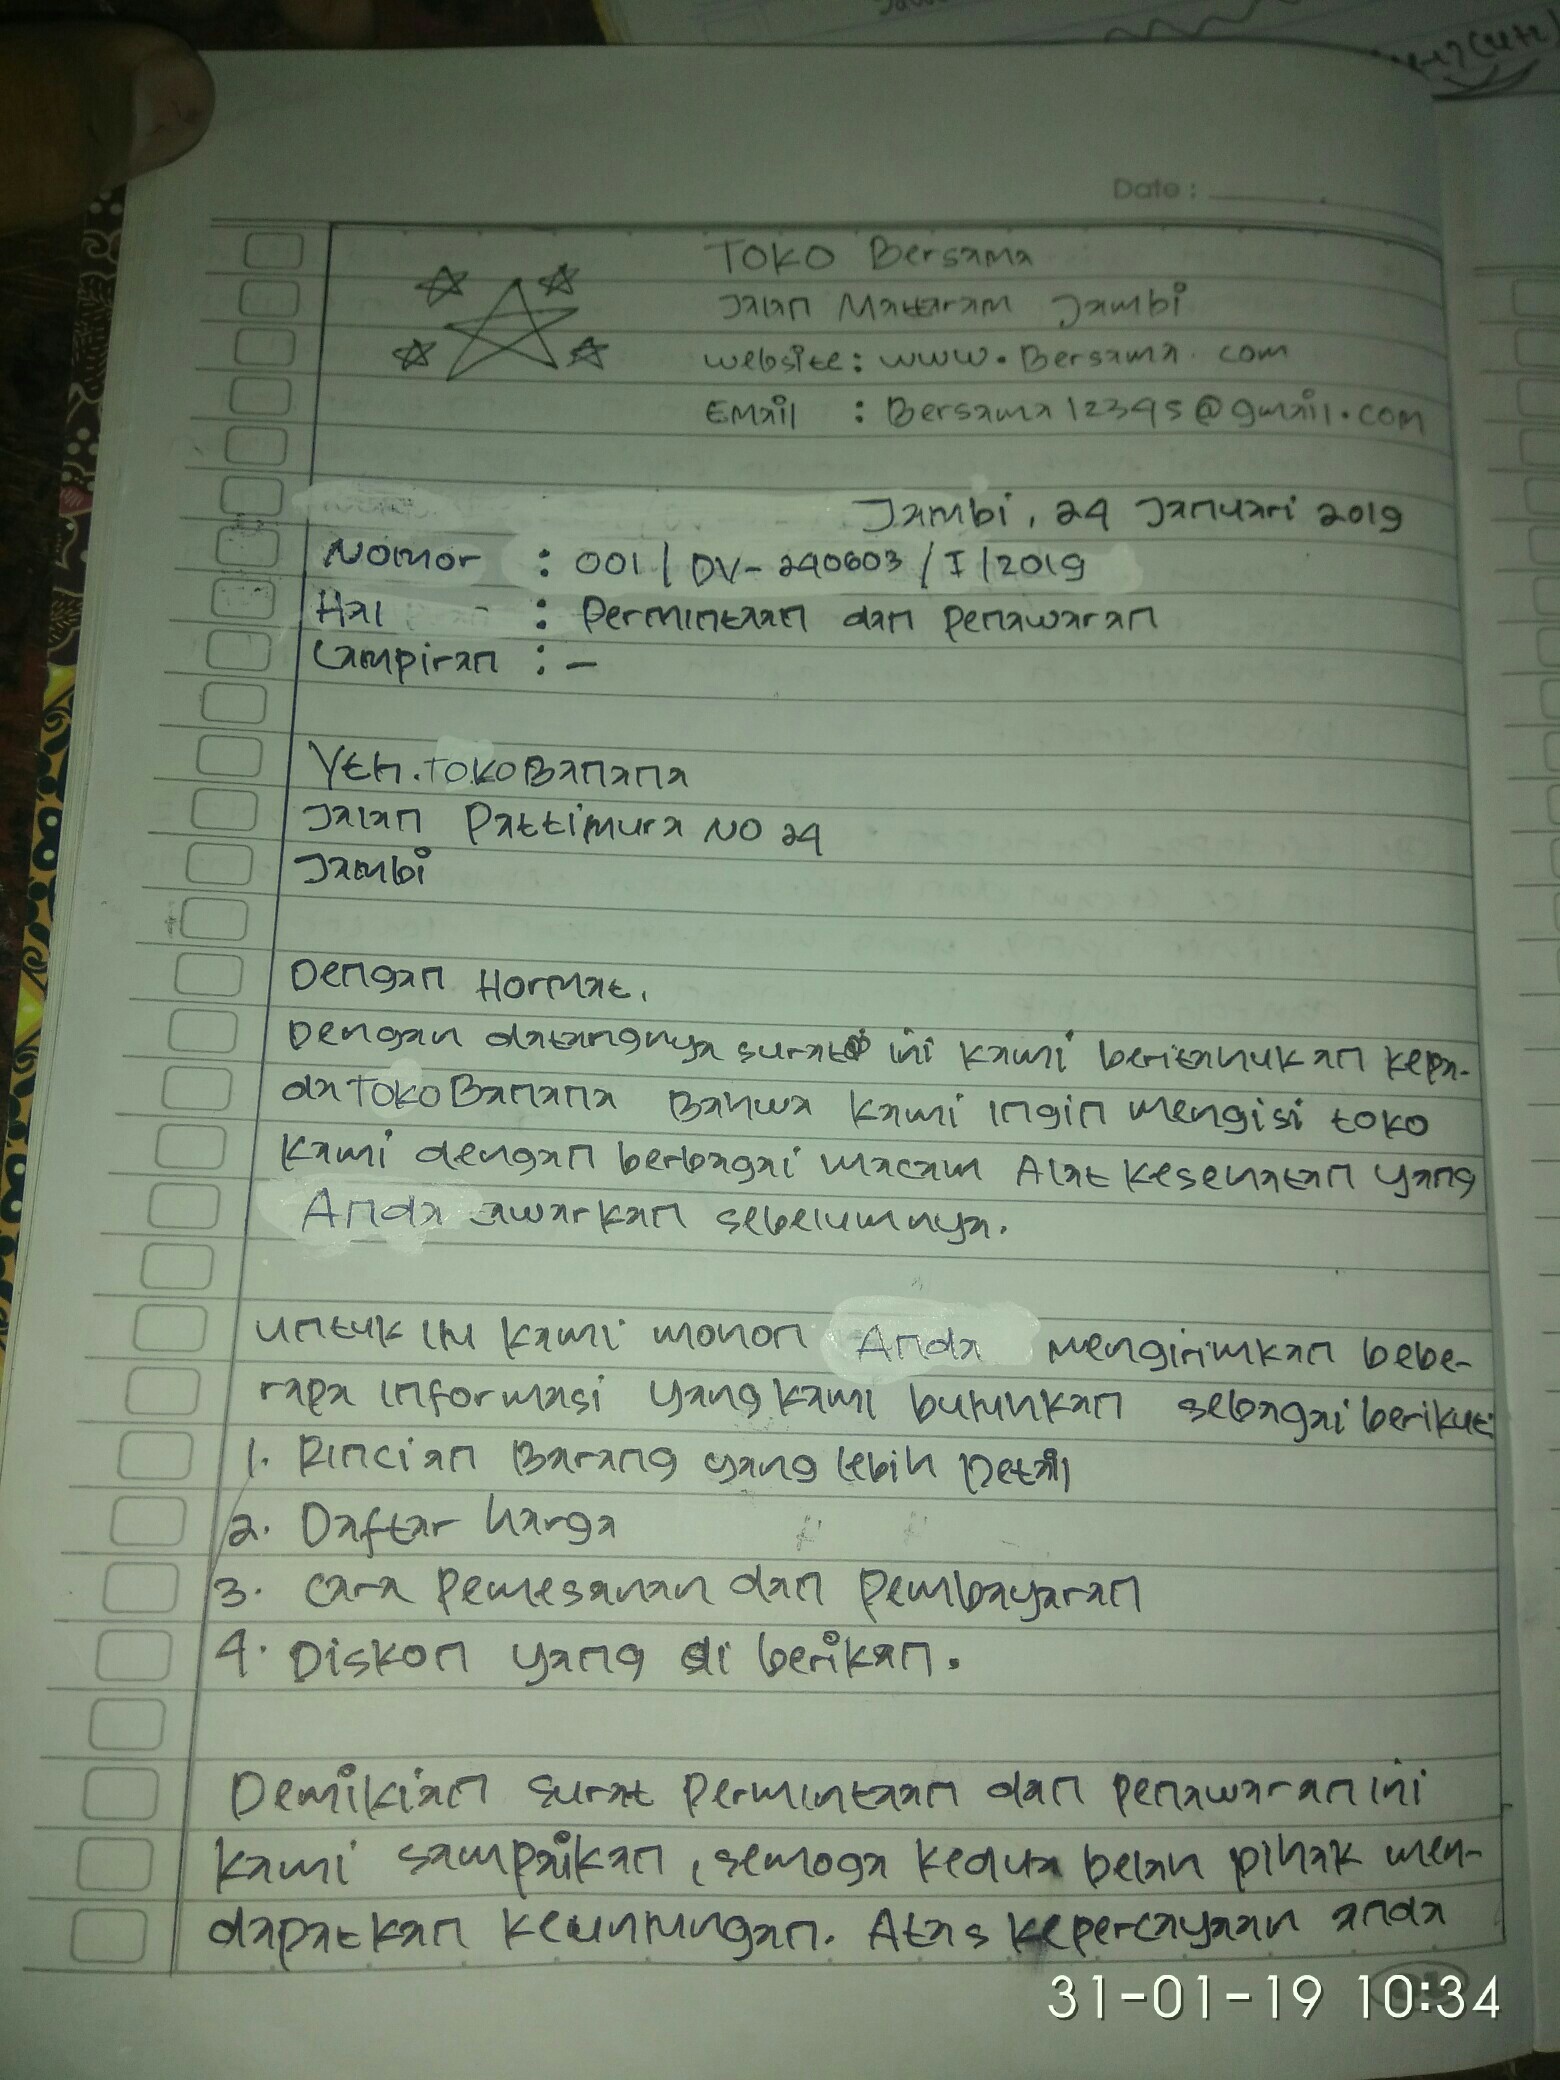 Date :
TOKO Bersama
Jalan Mattaram Jambi
website : www.Bersama.com
Email : Bersama12345@gmail.com
Jambi, 24 Januari 2019
Nomor : 001 / DV-240603 / I / 2019
Hal : Permintaan dan Penawaran
Lampiran : -
Yth. TOKO Banana
Jalan Pattimura NO 24
Jambi
Dengan Hormat,
Dengan datangnya surat ini kami beritahukan kepa-
da TOKO Banana Bahwa kami ingin mengisi toko
kami dengan berbagai macam Alat kesehatan yang
Anda tawarkan sebelumnya.
untuk itu kami mohon Anda mengirimkan bebe-
rapa informasi yang kami butuhkan sebagai berikut:
1. Rincian Barang yang lebih Detail
2. Daftar harga
3. cara Pemesanan dan Pembayaran
4. Diskon yang di berikan.
Demikian surat Permintaan dan penawaran ini
kami sampaikan, semoga kedua belah pihak men-
dapatkan keuntungan. Atas kepercayaan anda
31-01-19 10:34